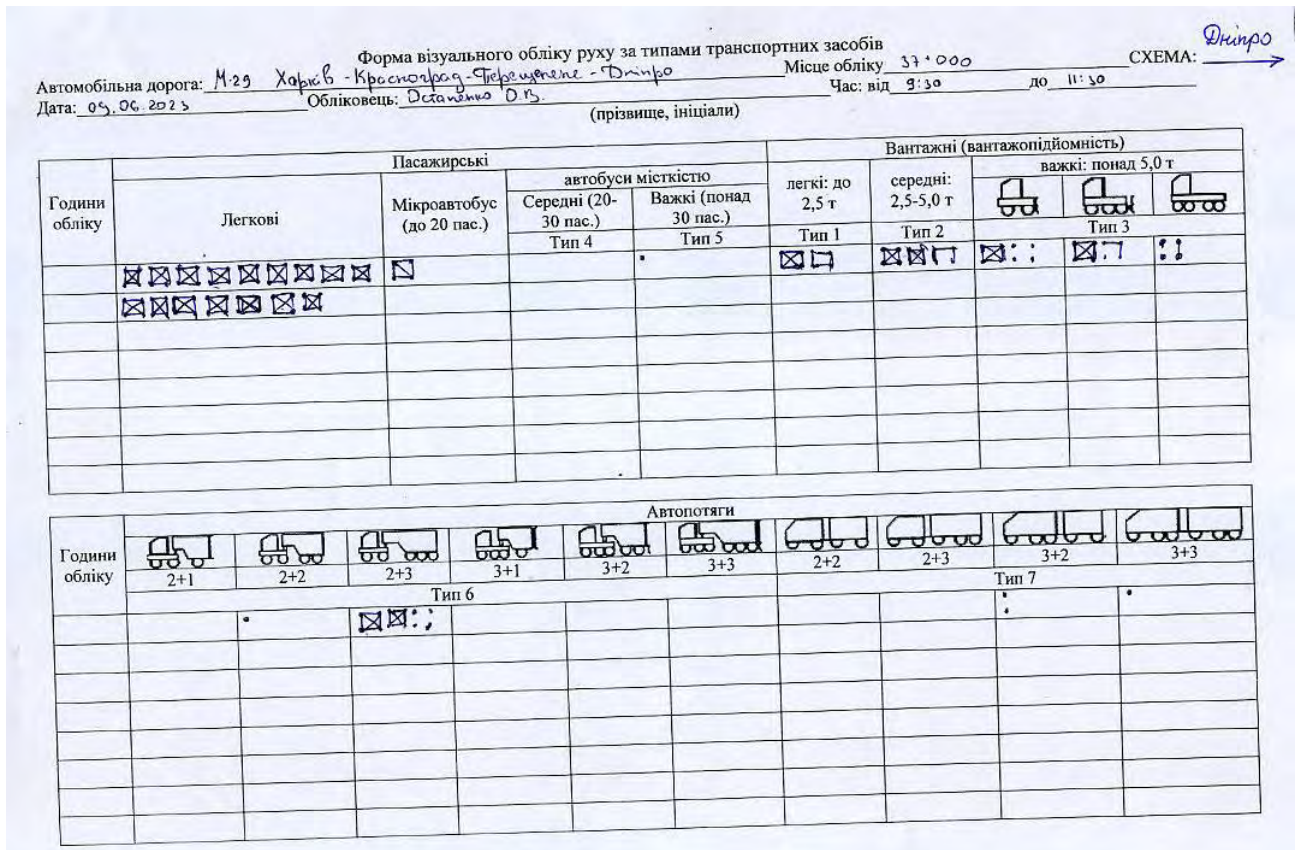 Форма візуального обліку руху за типами транспортних засобів
СХЕМА: Дніпро
Автомобільна дорога: М-29 Харків - Красноград - Перещепене - Дніпро Місце обліку 37+000
Дата: 09.06.2023 Обліковець: Остапенко О.В. Час: від 9:30 до 11:30
(прізвище, ініціали)
Години обліку
Пасажирські
Вантажні (вантажопідйомність)
Легкові
Мікроавтобус (до 20 пас.)
автобуси місткістю
Середні (20-30 пас.)
Важкі (понад 30 пас.)
Тип 4
Тип 5
легкі: до 2,5 т
середні: 2,5-5,0 т
важкі: понад 5,0 т
Тип 1
Тип 2
Тип 3
Години обліку
Автопотяги
2+1
2+2
2+3
3+1
3+2
3+3
2+2
2+3
3+2
3+3
Тип 6
Тип 7